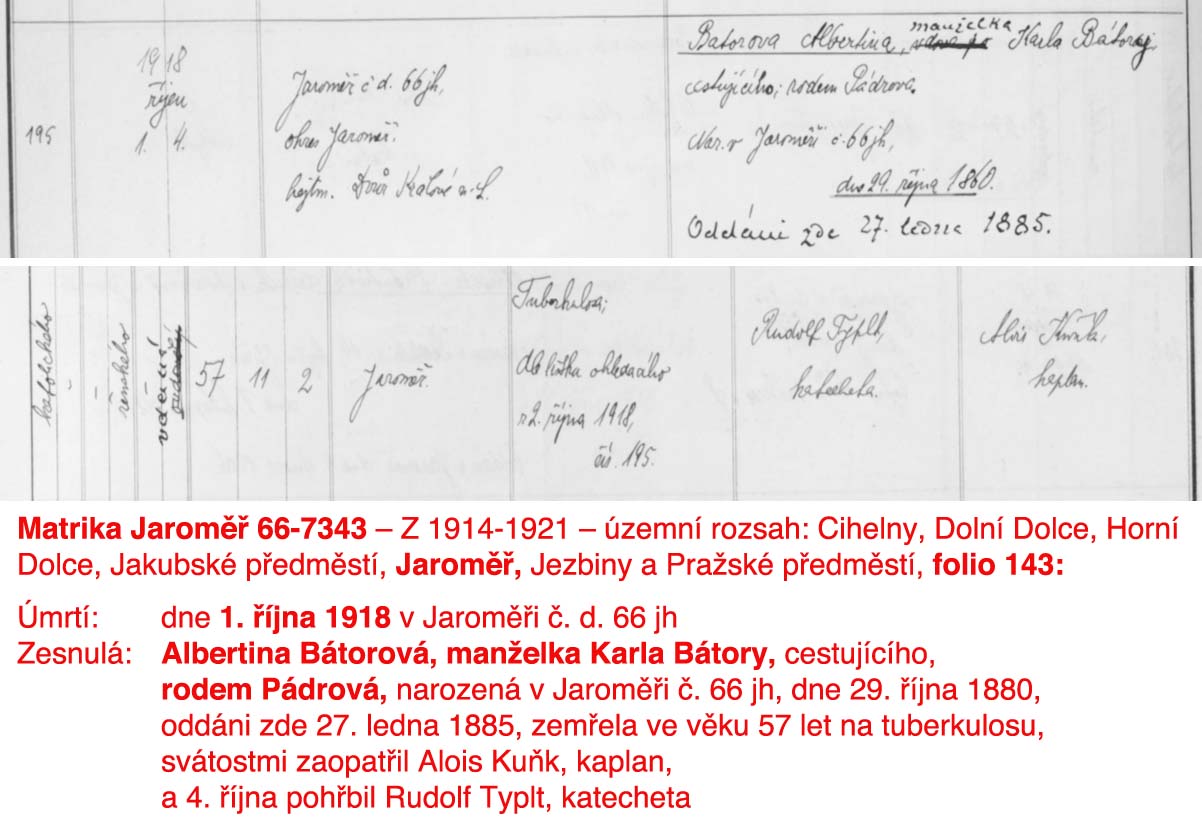 1918
říjen
195
1. 4.
Jaroměř č d. 66 jh,
okres Jaroměř.
hejtm. Dvůr Králové n. L.
Batorova Albertina, manželka vdova po Karla Bátory,
cestujícího; rodem Pádrova.
Nar. v Jaroměři č. 66 jh,
dne 29. října 1860.
Oddáni zde 27. ledna 1885.
katolického
římského
vdaná
57 11 2
Jaroměř.
Tuberkulosa;
dle lístku ohledacího
z 2. října 1918,
čís. 195.
Rudolf Typlt,
katecheta.
Alois
kaplan.
Matrika Jaroměř 66-7343 – Z 1914-1921 – územní rozsah: Cihelny, Dolní Dolce, Horní
Dolce, Jakubské předměstí, Jaroměř, Jezbiny a Pražské předměstí, folio 143:
Úmrtí: dne 1. října 1918 v Jaroměři č. d. 66 jh
Zesnulá: Albertina Bátorová, manželka Karla Bátory, cestujícího,
rodem Pádrová, narozená v Jaroměři č. 66 jh, dne 29. října 1880,
oddáni zde 27. ledna 1885, zemřela ve věku 57 let na tuberkulosu,
svátostmi zaopatřil Alois Kuňk, kaplan,
a 4. října pohřbil Rudolf Typlt, katecheta